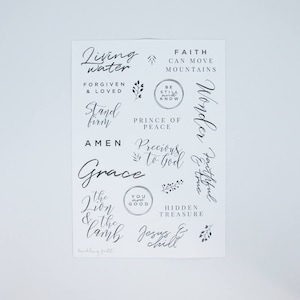 Living
water
FAITH
CAN MOVE
MOUNTAINS
FORGIVEN
& LOVED
BE
STILL
and
KNOW
Wonder
Stand
firm
PRINCE OF
PEACE
AMEN
Precious
to God
Faithful
& true
Grace
The
Lion
& the
Lamb
YOU
are
GOOD
HIDDEN
TREASURE
Jesus &
chill